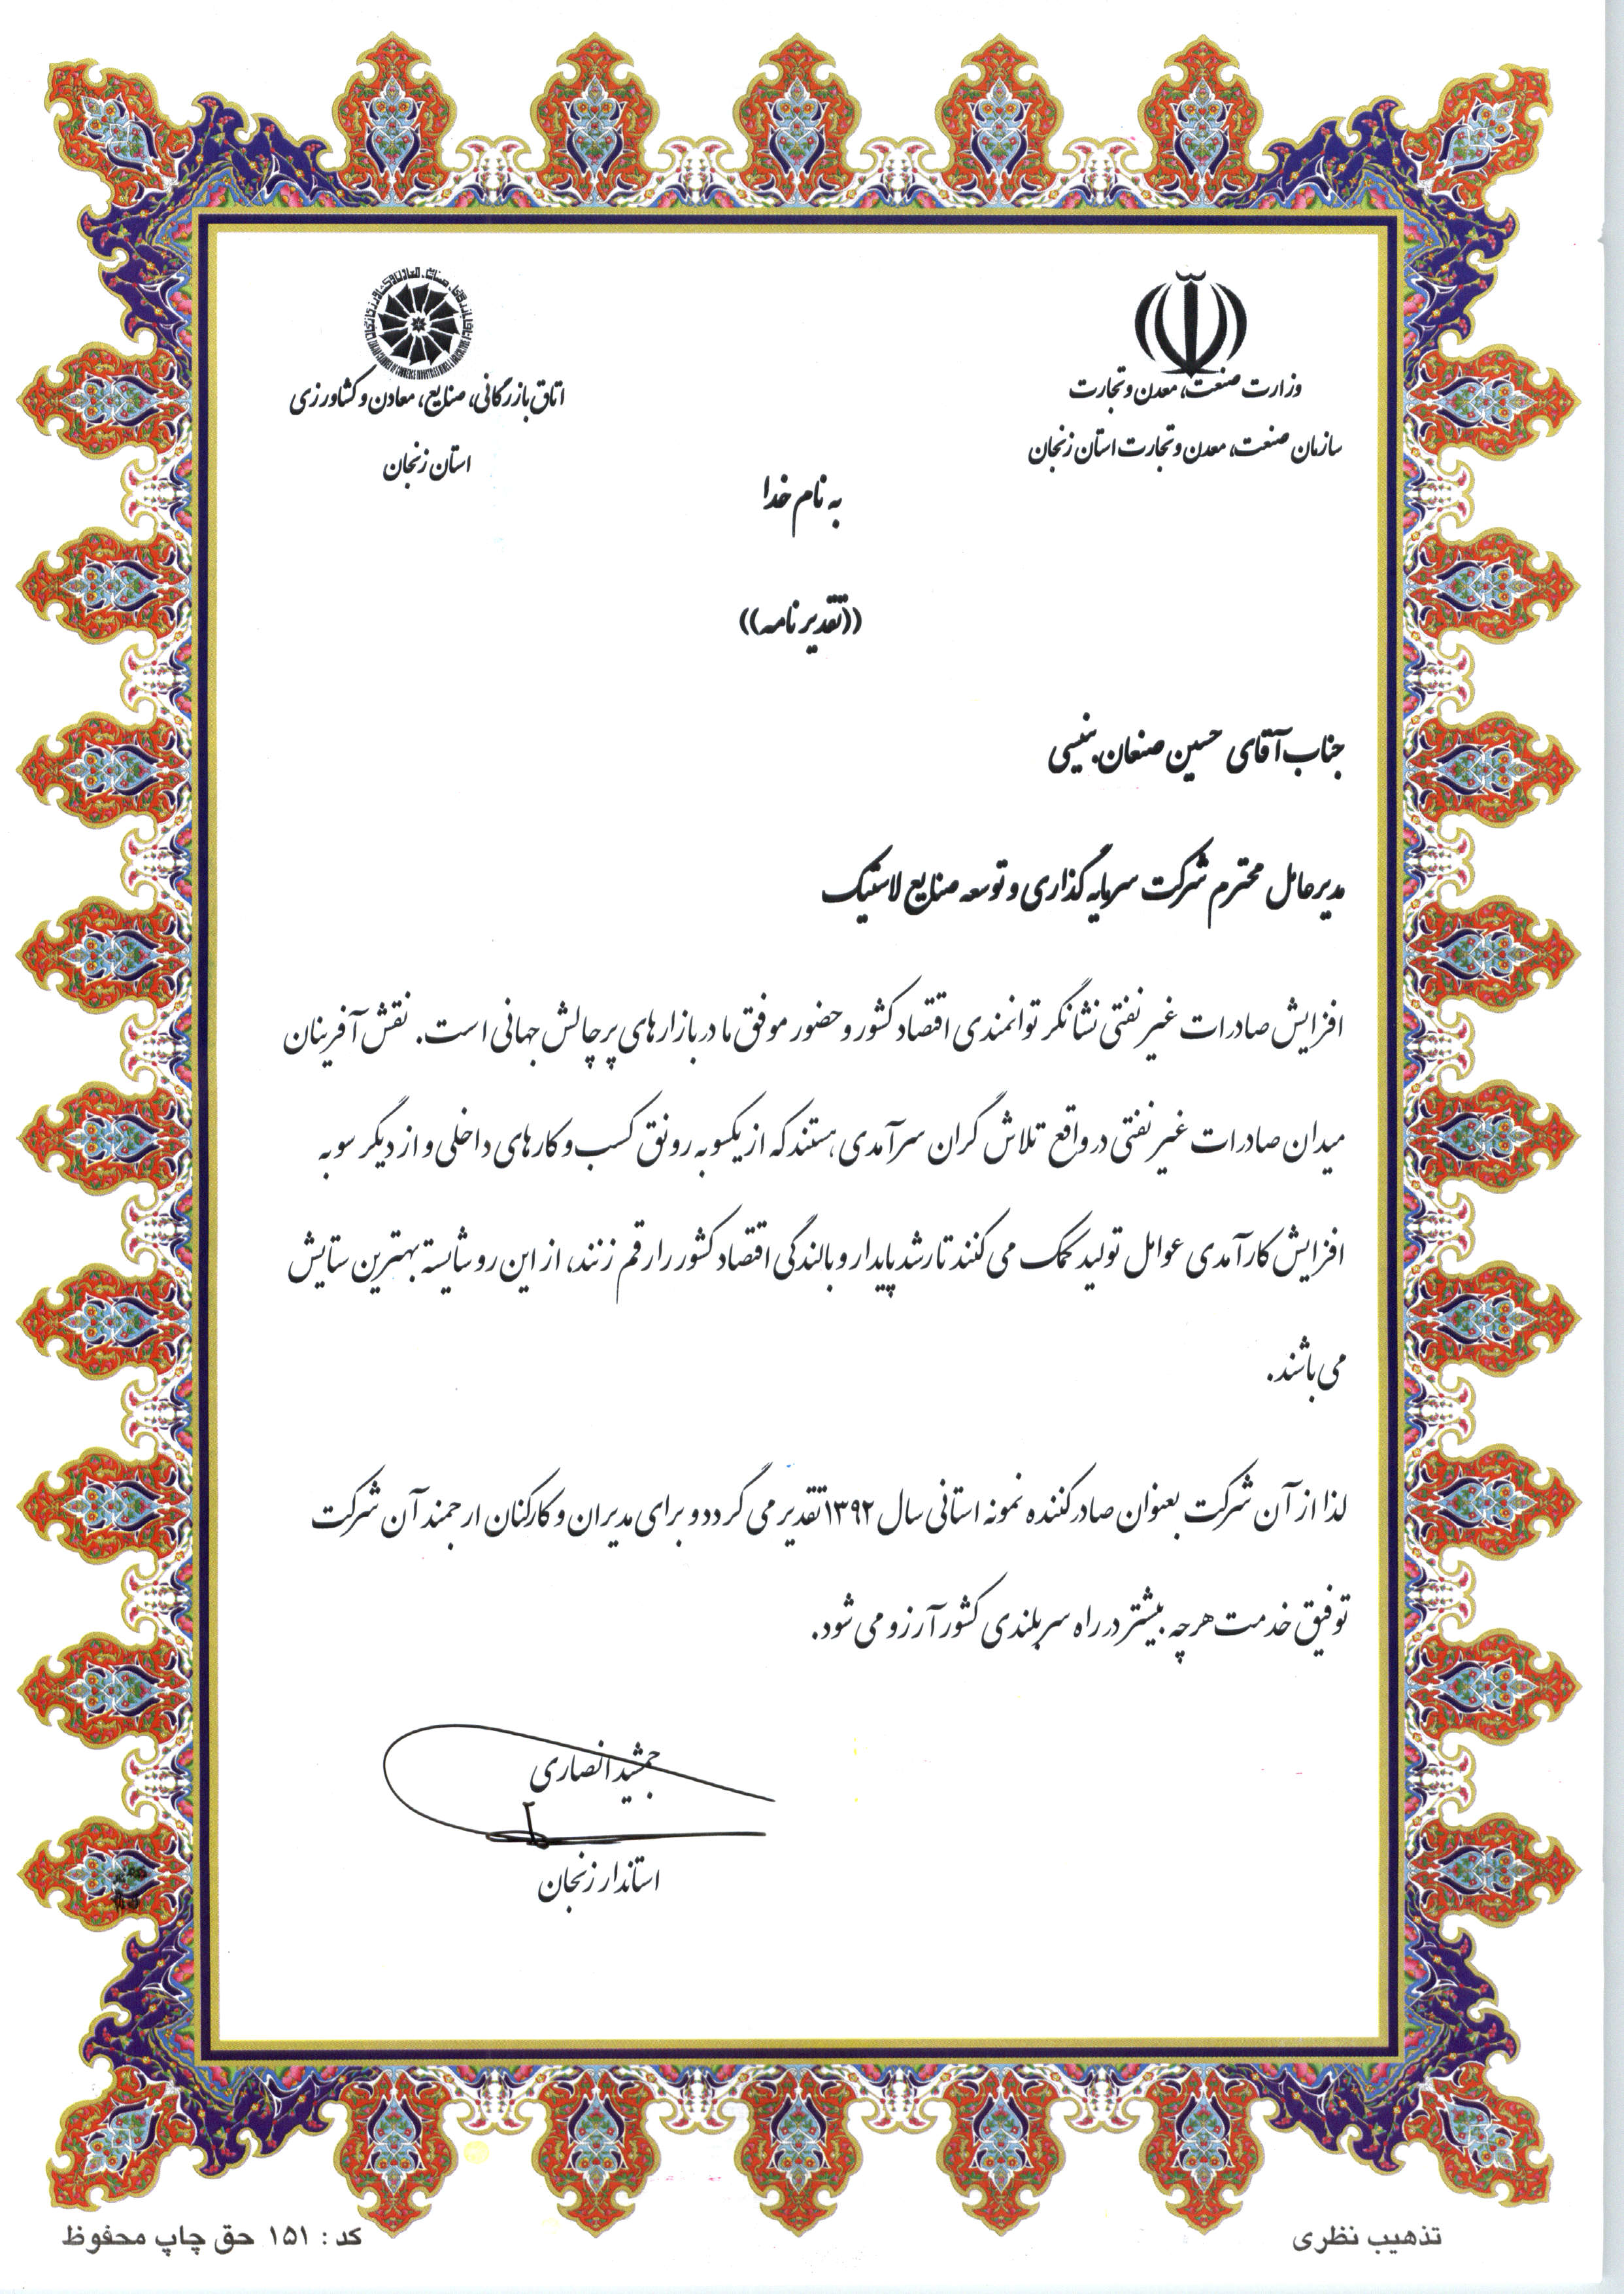 وزارت صنعت، معدن و تجارت
سازمان صنعت، معدن و تجارت استان زنجان
اتاق بازرگانی، صنایع، معادن و کشاورزی
استان زنجان
به نام خدا
((تقدیرنامه))
جناب آقای حسین صنعان بنیسی
مدیرعامل محترم شرکت سرمایه گذاری و توسعه صنایع لاستیک
افزایش صادرات غیر نفتی نشانگر توانمندی اقتصاد کشور و حضور موفق ما در بازارهای پرچالش جهانی است. نقش آفرینان
میدان صادرات غیر نفتی در واقع تلاش گران سرآمدی هستند که از یکسو به رونق کسب و کارهای داخلی و از دیگر سو به
افزایش کارآمدی عوامل تولید کمک می کنند تا رشد پایدار و بالندگی اقتصاد کشور را رقم زنند، از این رو شایسته بهترین ستایش
می باشند.
لذا از آن شرکت بعنوان صادرکننده نمونه استانی سال ۱۳۹۲ تقدیر می گردد و برای مدیران و کارکنان ارجمند آن شرکت
توفیق خدمت هرچه بیشتر در راه سربلندی کشور آرزو می شود.
جمشید انصاری
استاندار زنجان
تذهیب نظری
کد : ۱۵۱ حق چاپ محفوظ